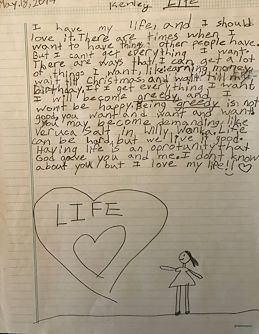 May.18, 2019
Kenley Life
I have my life, and I should
love it. There are times when I
want to have things other people have.
But I can't get everything I want.
There are ways that I can get a lot
of things I want, like earning money,
wait till Christmas and wait till my
birthday. If I get everything I want
I will become greedy and I
wont be happy. Being greedy is not
good, you want and want and want.
You may become demanding like
Veruca Salt in Willy Wonka. Life
can be hard, but we live it good.
Having life is an oprotunity that
God gave you and me. I dont know
about you, but I love my life!!
LIFE